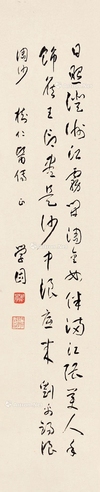 日照澄洲江霧開淘金女伴滿江隈美人首
飾侯王印盡是沙中浪底來 劉禹錫浪
淘沙 樹仁醫傅正